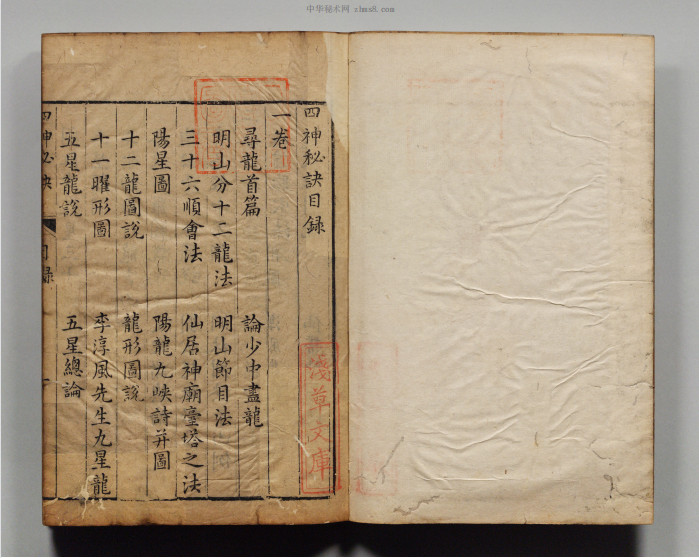 中华秘术网 zhms8.com
四神秘訣目録
一卷
尋龍首篇 論少中盡龍
明山分十二龍法 明山節目法
三十六順會法 仙居神廟臺塔之法
陽星圖 陽龍九峽詩并圖
十二龍圖說 龍形圖說
十一曜形圖 李淳風先生九星龍
五星龍說 五星總論
四神秘訣 目録
淺草文庫